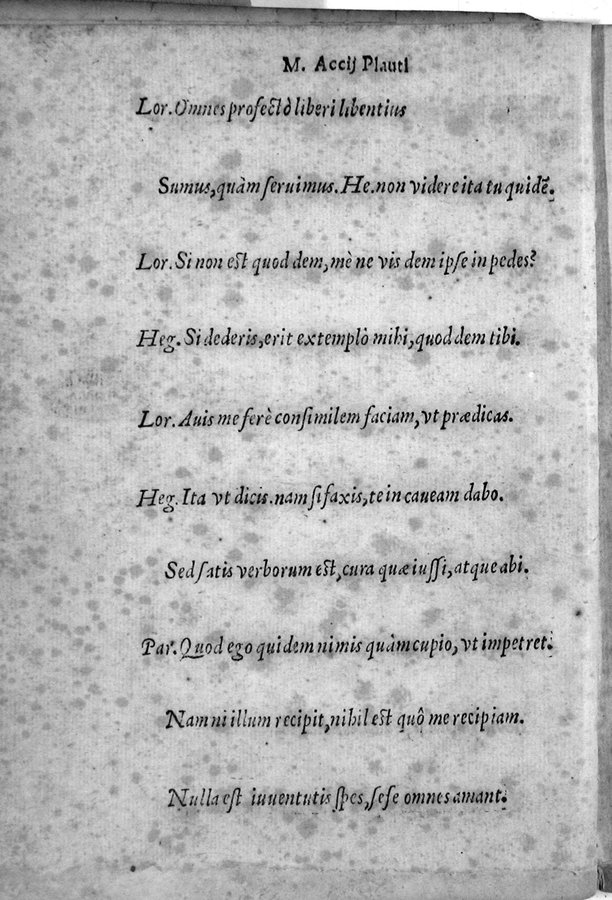 M. Accij Plauti
Lor. Omnes profectò liberi libentius
Sumus, quàm seruimus. He. non videre ita tu quidẽ.
Lor. Si non est quod dem, mè ne vis dem ipse in pedes?
Heg. Si dederis, erit extemplò mihi, quod dem tibi.
Lor. Auis me ferè consimilem faciam, vt prædicas.
Heg. Ita vt dicis. nam si faxis, te in caueam dabo.
Sed satis verborum est, cura quæ iussi, atque abi.
Par. Quod ego quidem nimis quàm cupio, vt impetret.
Nam ni illum recipit, nihil est quô me recipiam.
Nulla est iuuentutis spes, sese omnes amant.